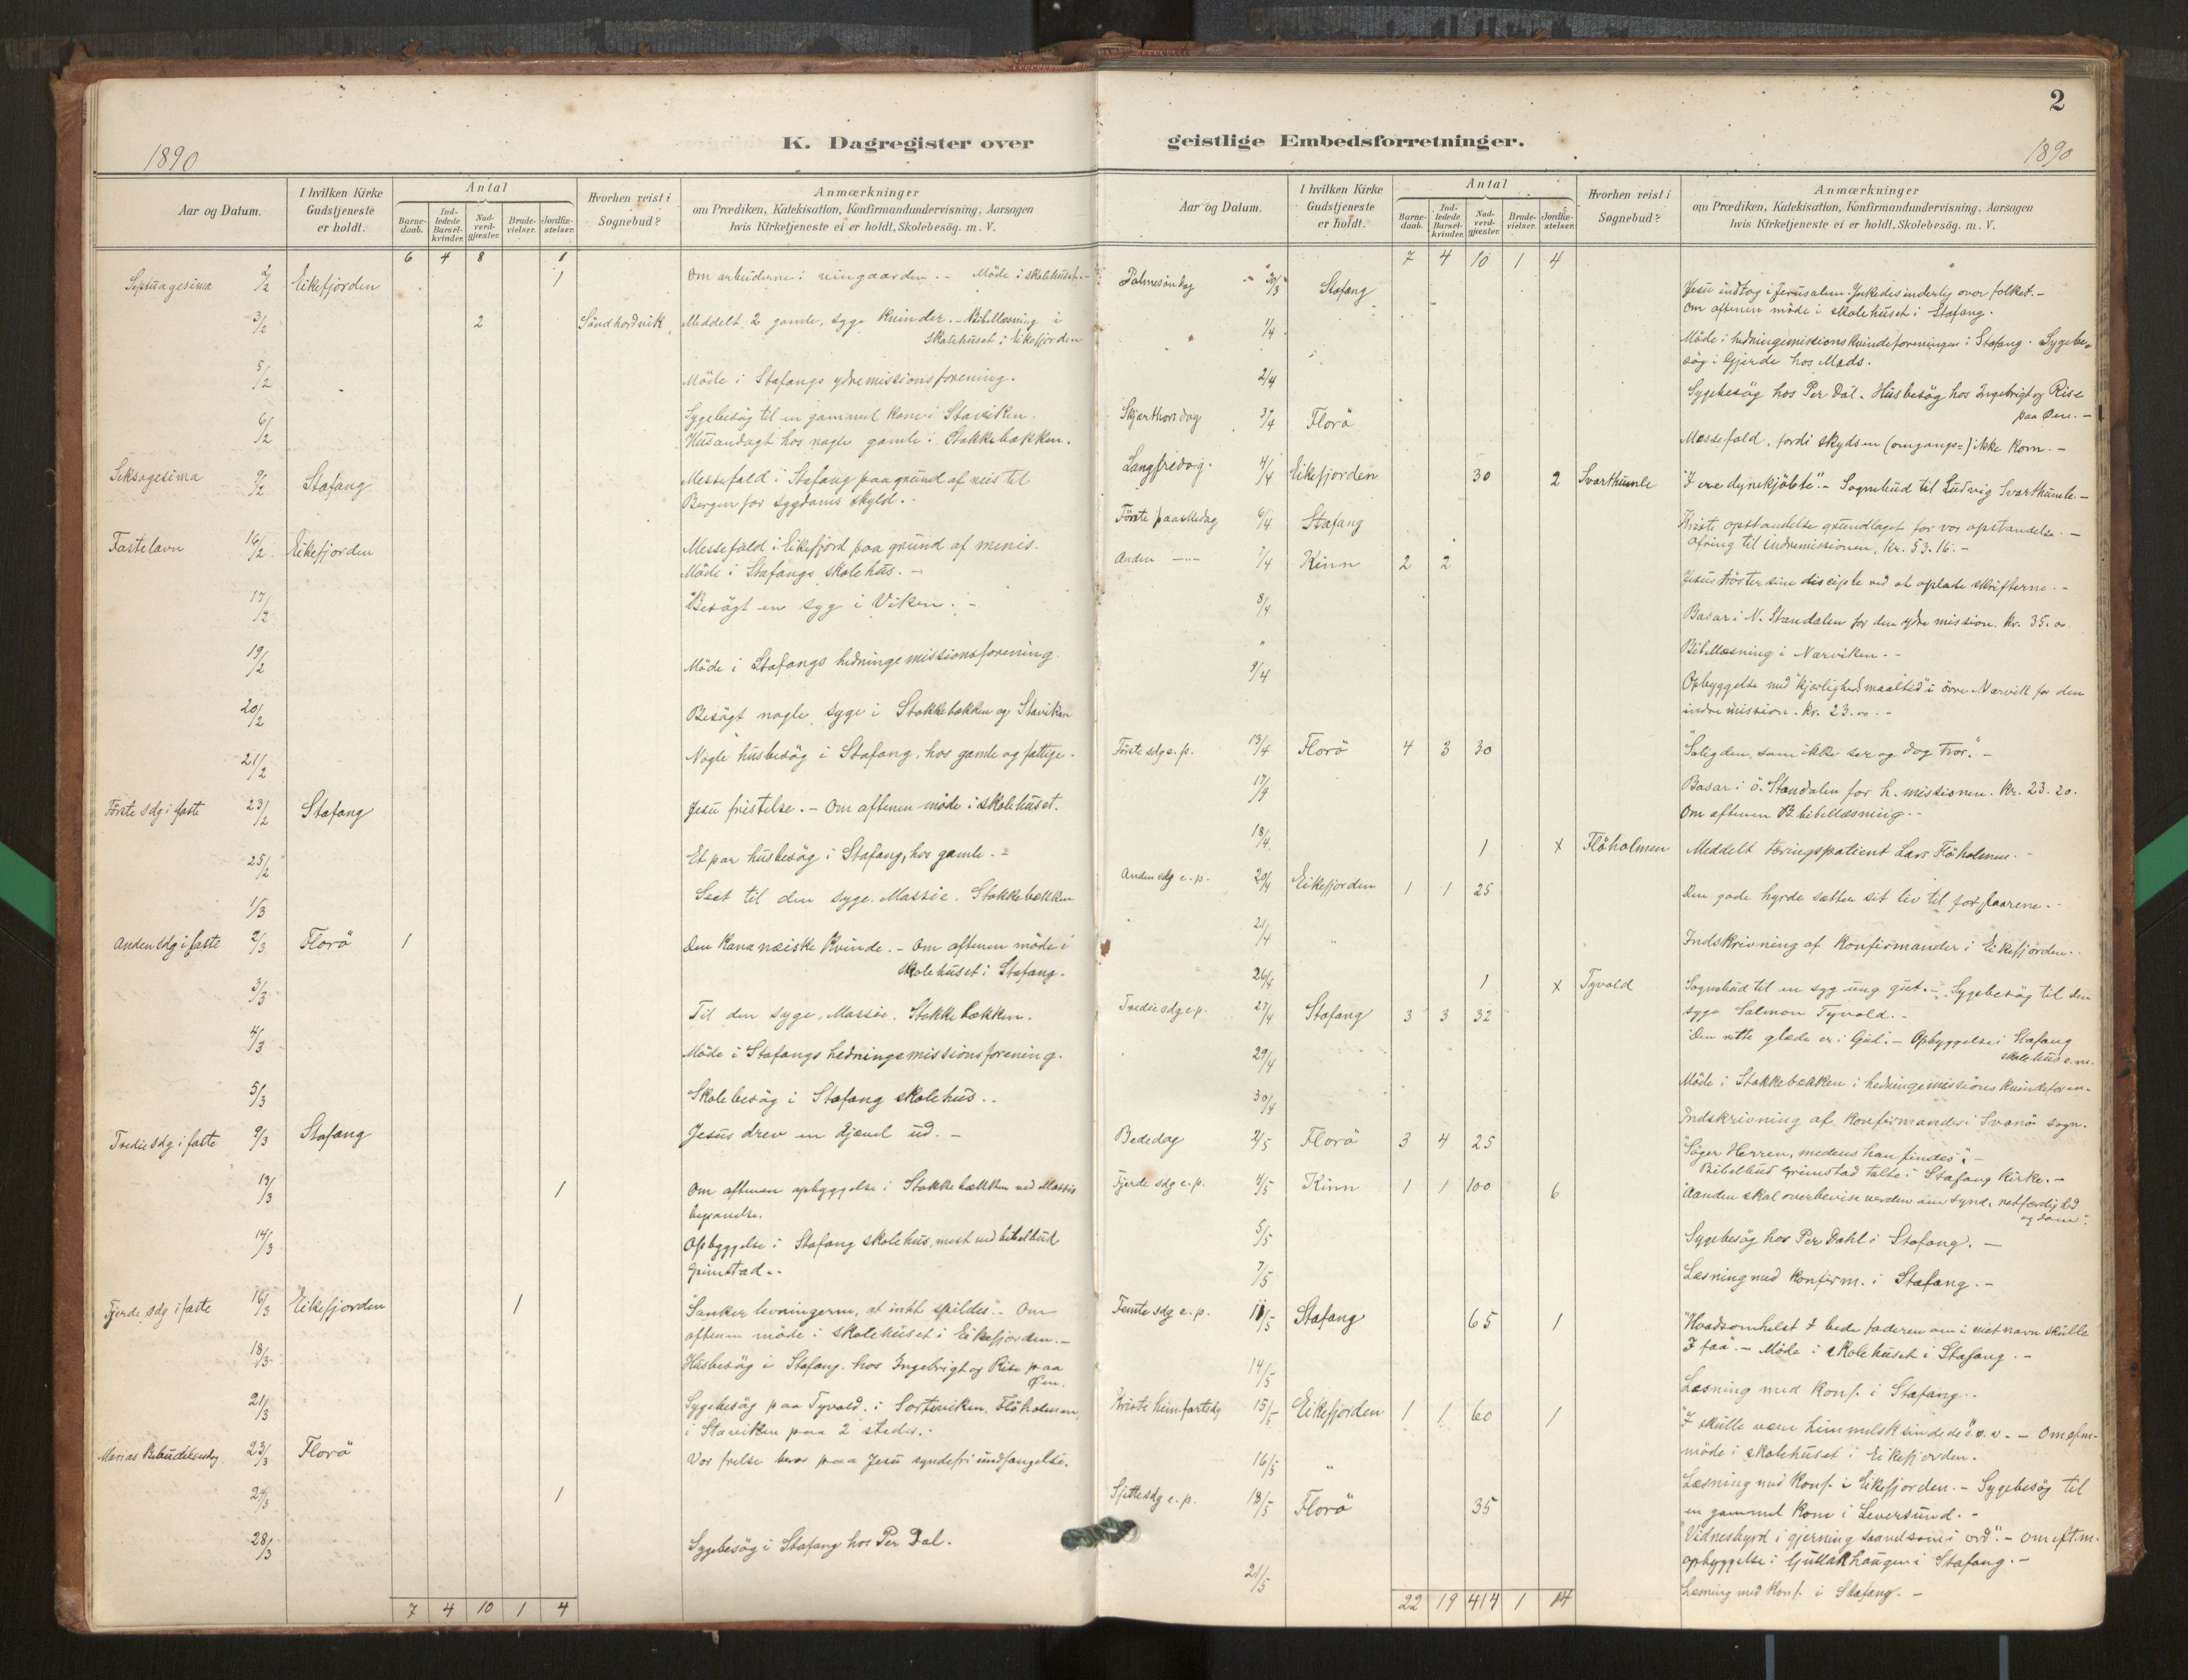 2
K. Dagregister over geistlige Embedsforretninger.
1890
1890
Aar og Datum.
I hvilken Kirke Gudstjeneste er holdt.
Antal
Barne-daab.
Ind-ledede Barsel-kvinder.
Nad-verd-gjæster.
Brude-vielser.
Jordfæ-stelser.
Hvorhen reist i Sognebud?
Anmærkninger
om Prædiken, Katekisation, Konfirmandundervisning, Aarsagen
hvis Kirketjeneste ei er holdt, Skolebesög. m. V.
6 4 8 1
Septuagesima 2/2 Eikefjorden 1 Om arbeiderne i vingaarden. - Möde i skolehuset. -
3/2 2 Söndhordvik Meddelt 2 gamle, syge kvinder. - Bibellæsning i
skolehuset i Eikefjorden
5/2 Möde i Stafangs ydremissionsforening.
6/2 Sygebesög til en gammel kone i Staviken.
Husandagt hos nogle gamle i Stokkebækken.
Seksagesima 9/2 Stafang Messefald i Stafang paa grund af reis til
Bergen for sygdoms skyld. -
Fastelavn 16/2 Eikefjorden Messefald i Eikefjord paa grund af menis.
Möde i Stafangs skolehus. -
17/2 Besögt en syg i Viken. -
19/2 Möde i Stafangs hedningemissionsforening.
20/2 Besögt nogle syge i Stokkebækken og Staviken
21/2 Nogle husbesög i Stafang, hos gamle og fattige.
Förste sdg i faste 23/2 Stafang Jesu fristelse. - Om aftenen möde i skolehuset.
25/2 Et par husbesög i Stafang, hos gamle. -
1/3 Seet til den syge. Massie. Stokkebækken
Anden sdg i faste 2/3 Florö 1 Den kananæiske kvinde. - Om aftenen möde i
skolehuset i Stafang.
3/3 Til den syge, Massie. Stokkebækken.
4/3 Möde i Stafangs hedningemissionsforening.
5/3 Skolebesög i Stafang skolehus. -
Tredie sdg i faste 9/3 Stafang Jesus drev en djævel ud. -
13/3 1 Om aftenen opbyggelse i Stokkebækken ved Massis
begravelse.
14/3 Opbyggelse i Stafang skolehus, mest ved bibelbud
Grimstad. -
Fjerde sdg i faste 16/3 Eikefjorden 1 "Sanker levningerne, at intet spildes". - Om
aftenen möde i skolehuset i Eikefjorden. -
18/3 Husbesög i Stafang. hos Ingebrigt og Rise paa
Öen.
21/3 Sygebesög paa Tyvold, i Sorteviken, Flöholmen,
i Staviken paa 2 steder. -
Marias Bebudelsesdag 23/3 Florö Vor frelse beror paa Jesu syndefri undfangelse.
24/3 1
28/3 Sygebesög i Stafang hos Per Dal.
7 4 10 1 4
Aar og Datum.
I hvilken Kirke Gudstjeneste er holdt.
Antal
Barne-daab.
Ind-ledede Barsel-kvinder.
Nad-verd-gjæster.
Brude-vielser.
Jordfæ-stelser.
Hvorhen reist i Sognebud?
Anmærkninger
om Prædiken, Katekisation, Konfirmandundervisning, Aarsagen
hvis Kirketjeneste ei er holdt, Skolebesög. m. V.
7 4 10 1 4
Palmesöndag 30/3 Stafang Jesu indtog i Jerusalem. Ynkedes inderlig over folket. -
Om aftenen möde i skolehuset i Stafang.
1/4 Möde i hedningemissionskvindeforeningen i Stafang. Sygebe-
sög i Gjerde hos Mads.
2/4 Sygebesög hos Per Dal. Husbesög hos Ingebrigt og Rise
paa Öen. -
Skjærthorsdag 3/4 Florö Messefald, fordi skydsen (omgangs-) ikke kom. -
Langfredag. 4/4 Eikefjorden 30 2 Svarthumle "I ere dyrekjöbte". - Sognebud til Ludvig Svarthumle. -
Förste paaskedag 6/4 Stafang Kristi opstandelse grundlaget for vor opstandelse. -
Ofring til indremissionen, kr. 53.16. -
Anden -"- 7/4 Kinn 2 2 Jesus tröster sine disciple ved at oplade skrifterne. -
8/4 Basar i N. Standalen for den ydre mission. Kr. 35.00
" Bibellæsning i Nærviken. -
9/4 Opbyggelse med "kjærlighedsmaaltid" i övre Nærvik for den
indre mission. Kr. 23.00. -
Förste sdg e. p. 13/4 Florö 4 3 30 "Salig den, som ikke ser og dog tror." -
17/4 Basar i ö. Standalen for h. missionen. Kr. 23.20.
Om aftenen Bibellæsning. -
18/4 1 x Flöholmen Meddelt tæringspatient Lars Flöholmen. -
Anden sdg e. p. 20/4 Eikefjorden 1 1 25 Den gode hyrde sætter sit liv til for faarene. -
21/4 " Indskrivning af konfirmander i Eikefjorden. -
26/4 1 x Tyvold Sognebud til en syg ung gut. - Sygebesög til den
syge Salmon Tyvold. -
Tredie sdg e. p. 27/4 Stafang 3 3 32 Den rette glæde er i Gud. - Opbyggelse i Stafang
skolehus e.m.
29/4 Möde i Stokkebækken i hedningemissions kvindeforen-
30/4 Indskrivning af konfirmander i Svanö sogn.
Bededag 2/5 Florö 3 4 25 "Söger Herren, medens han findes". -
Bibelbud Grimstad talte i Stafang kirke. -
Fjerde sdg e. p. 4/5 Kinn 1 1 100 6 "Aanden skal overbevise verden om synd, retfærdighed
og dom".
5/5 Sygebesög hos Per Dahl i Stafang. -
7/5 Læsning med konfirm. i Stafang. -
Femte sdg e. p. 11/5 Stafang 65 1 "Hvadsomhelst I bede faderen om i mit navn skulle
I faa". - Möde i skolehuset i Stafang. -
14/5 Læsning med konf. i Stafang. -
Kristi himmfartsdg 15/5 Eikefjorden 1 1 60 1 "I skulle være himmelsksindede" o.s.v. - Om efm.
möde i skolehuset i Eikefjorden.
16/5 " Læsning med konf. i Eikefjorden. - Sygebesög til
en gammel kone i Leversund. -
Sjette sdg e. p. 18/5 Florö 35 "Vidnesbyrd i gjerning saavelsom i ord". - Om eft.m.
opbyggelse i i Stafang. -
21/5 Læsning med konf. i Stafang. -
22 19 414 1 14